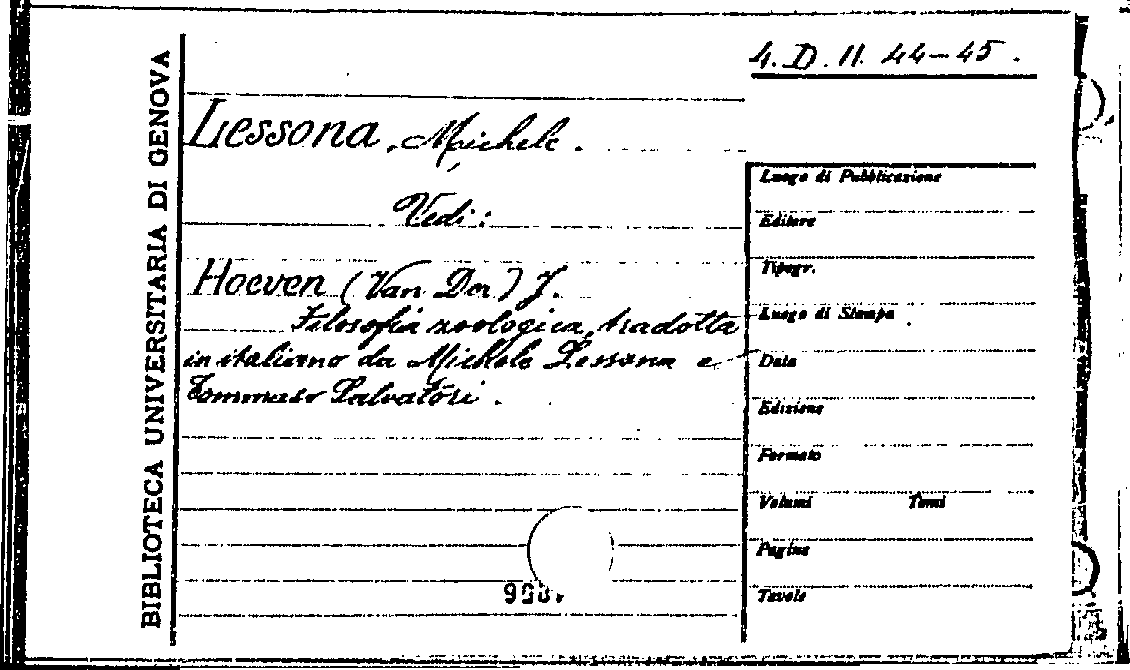 4. D. II. 44-45.
BIBLIOTECA UNIVERSITARIA DI GENOVA
Lessona, Michele.
Vedi:
Hoeven (Van Der) J.
Filosofia zoologica, tradotta
in italiano da Michele Lessona e
Tommaso Salvatori.
Luogo di Pubblicazione
Editore
Tipogr.
Luogo di Stampa
Data
Edizione
Formato
Volumi Tomi
Pagine
Tavole